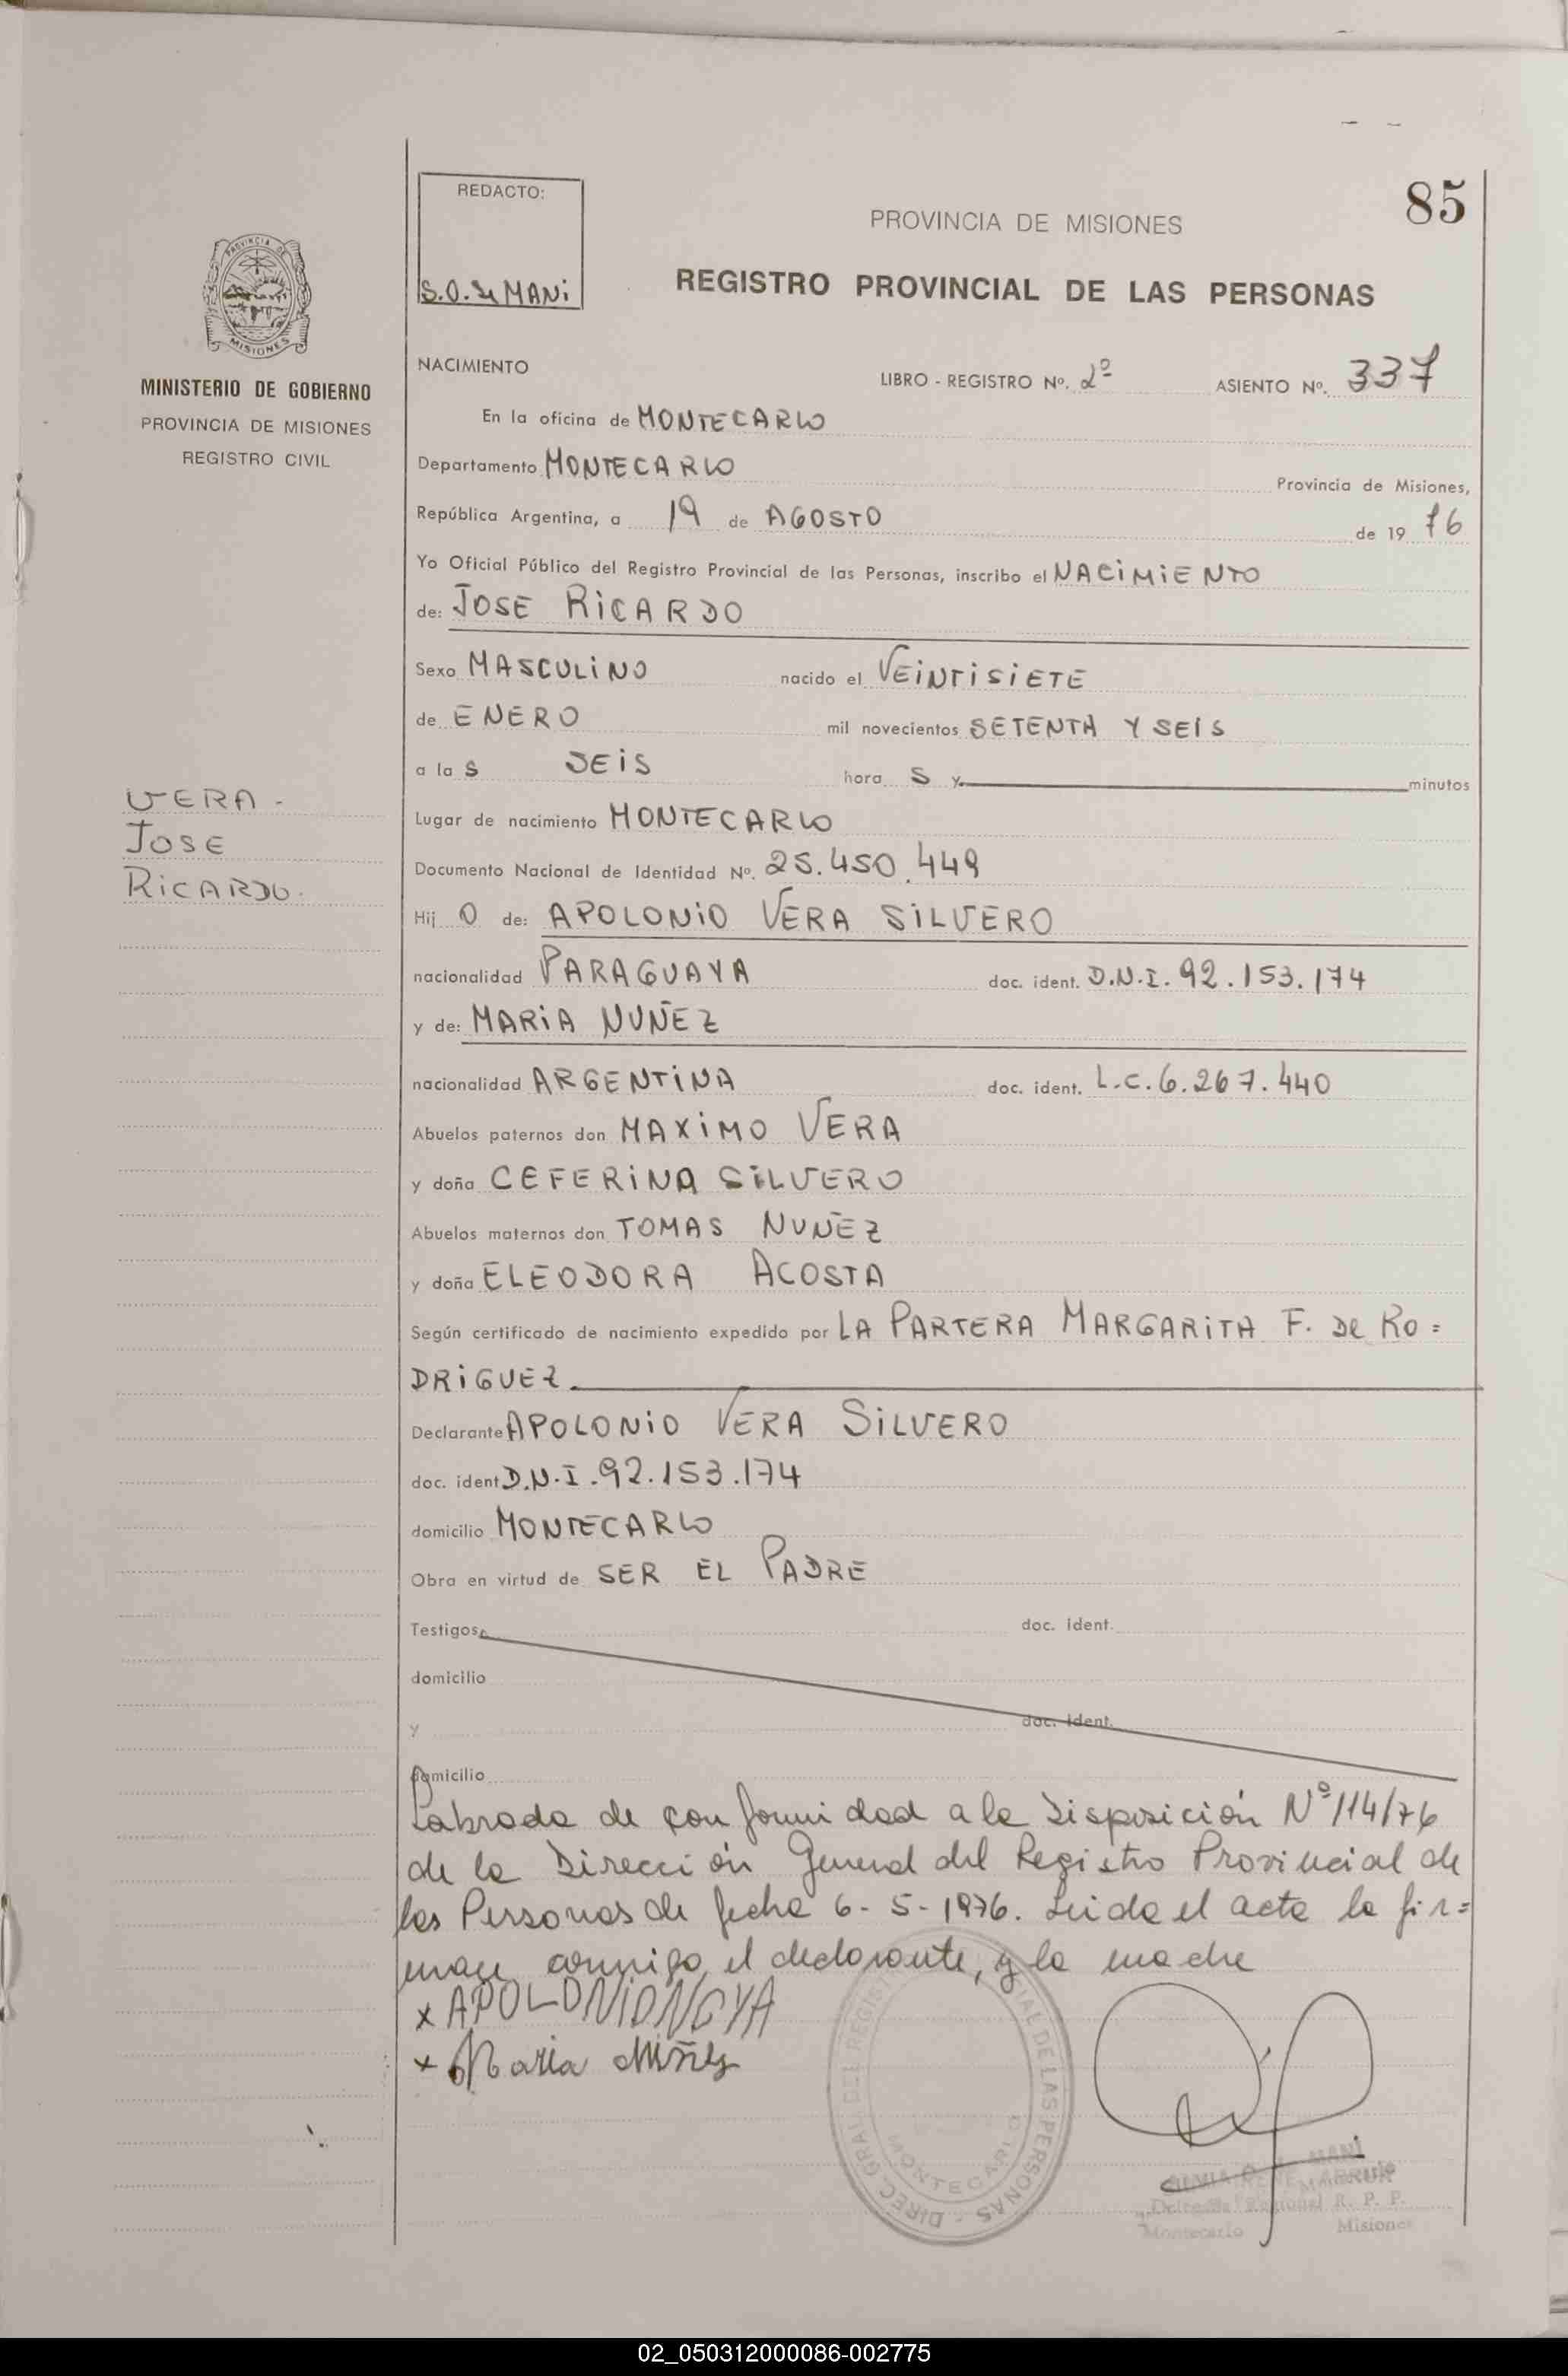 85
REDACTO:
S.O. de MANI
PROVINCIA DE MISIONES
REGISTRO PROVINCIAL DE LAS PERSONAS
PROVINCIA DE
MISIONES
MINISTERIO DE GOBIERNO
PROVINCIA DE MISIONES
REGISTRO CIVIL
NACIMIENTO LIBRO - REGISTRO Nº. 2º ASIENTO Nº. 337
En la oficina de MONTECARLO
Departamento MONTECARLO Provincia de Misiones,
República Argentina, a 19 de AGOSTO de 19 76
Yo Oficial Público del Registro Provincial de las Personas, inscribo el NACIMIENTO
de: JOSE RICARDO
Sexo MASCULINO nacido el VEINTISIETE
de ENERO mil novecientos SETENTA Y SEIS
a la S SEIS hora S y minutos
VERA -
JOSE
RICARDO.
Lugar de nacimiento MONTECARLO
Documento Nacional de Identidad Nº. 25.450.449
Hij O de: APOLONIO VERA SILVERO
nacionalidad PARAGUAYA doc. ident. D.N.I. 92.153.174
y de: MARIA NUÑEZ
nacionalidad ARGENTINA doc. ident. L.C. 6.267.440
Abuelos paternos don MAXIMO VERA
y doña CEFERINA SILVERO
Abuelos maternos don TOMAS NUÑEZ
y doña ELEODORA ACOSTA
Según certificado de nacimiento expedido por LA PARTERA MARGARITA F. DE RO=
DRIGUEZ.
Declarante APOLONIO VERA SILVERO
doc. ident D.N.I. 92.153.174
domicilio MONTECARLO
Obra en virtud de SER EL PADRE
Testigos doc. ident.
domicilio
y doc. ident.
domicilio
Labrada de conformidad a la Disposición Nº 114/76
de la Dirección General del Registro Provincial de
las Personas de fecha 6-5-1976. Leida el acta la fir=
man conmigo el declarante, y la madre
x APOLONIO
x Maria Nuñez
DIREC. GRAL DEL REGISTRO PROVINCIAL DE LAS PERSONAS - MONTECARLO
MANI
R. P. P.
Montecarlo Misiones
02_050312000086-002775